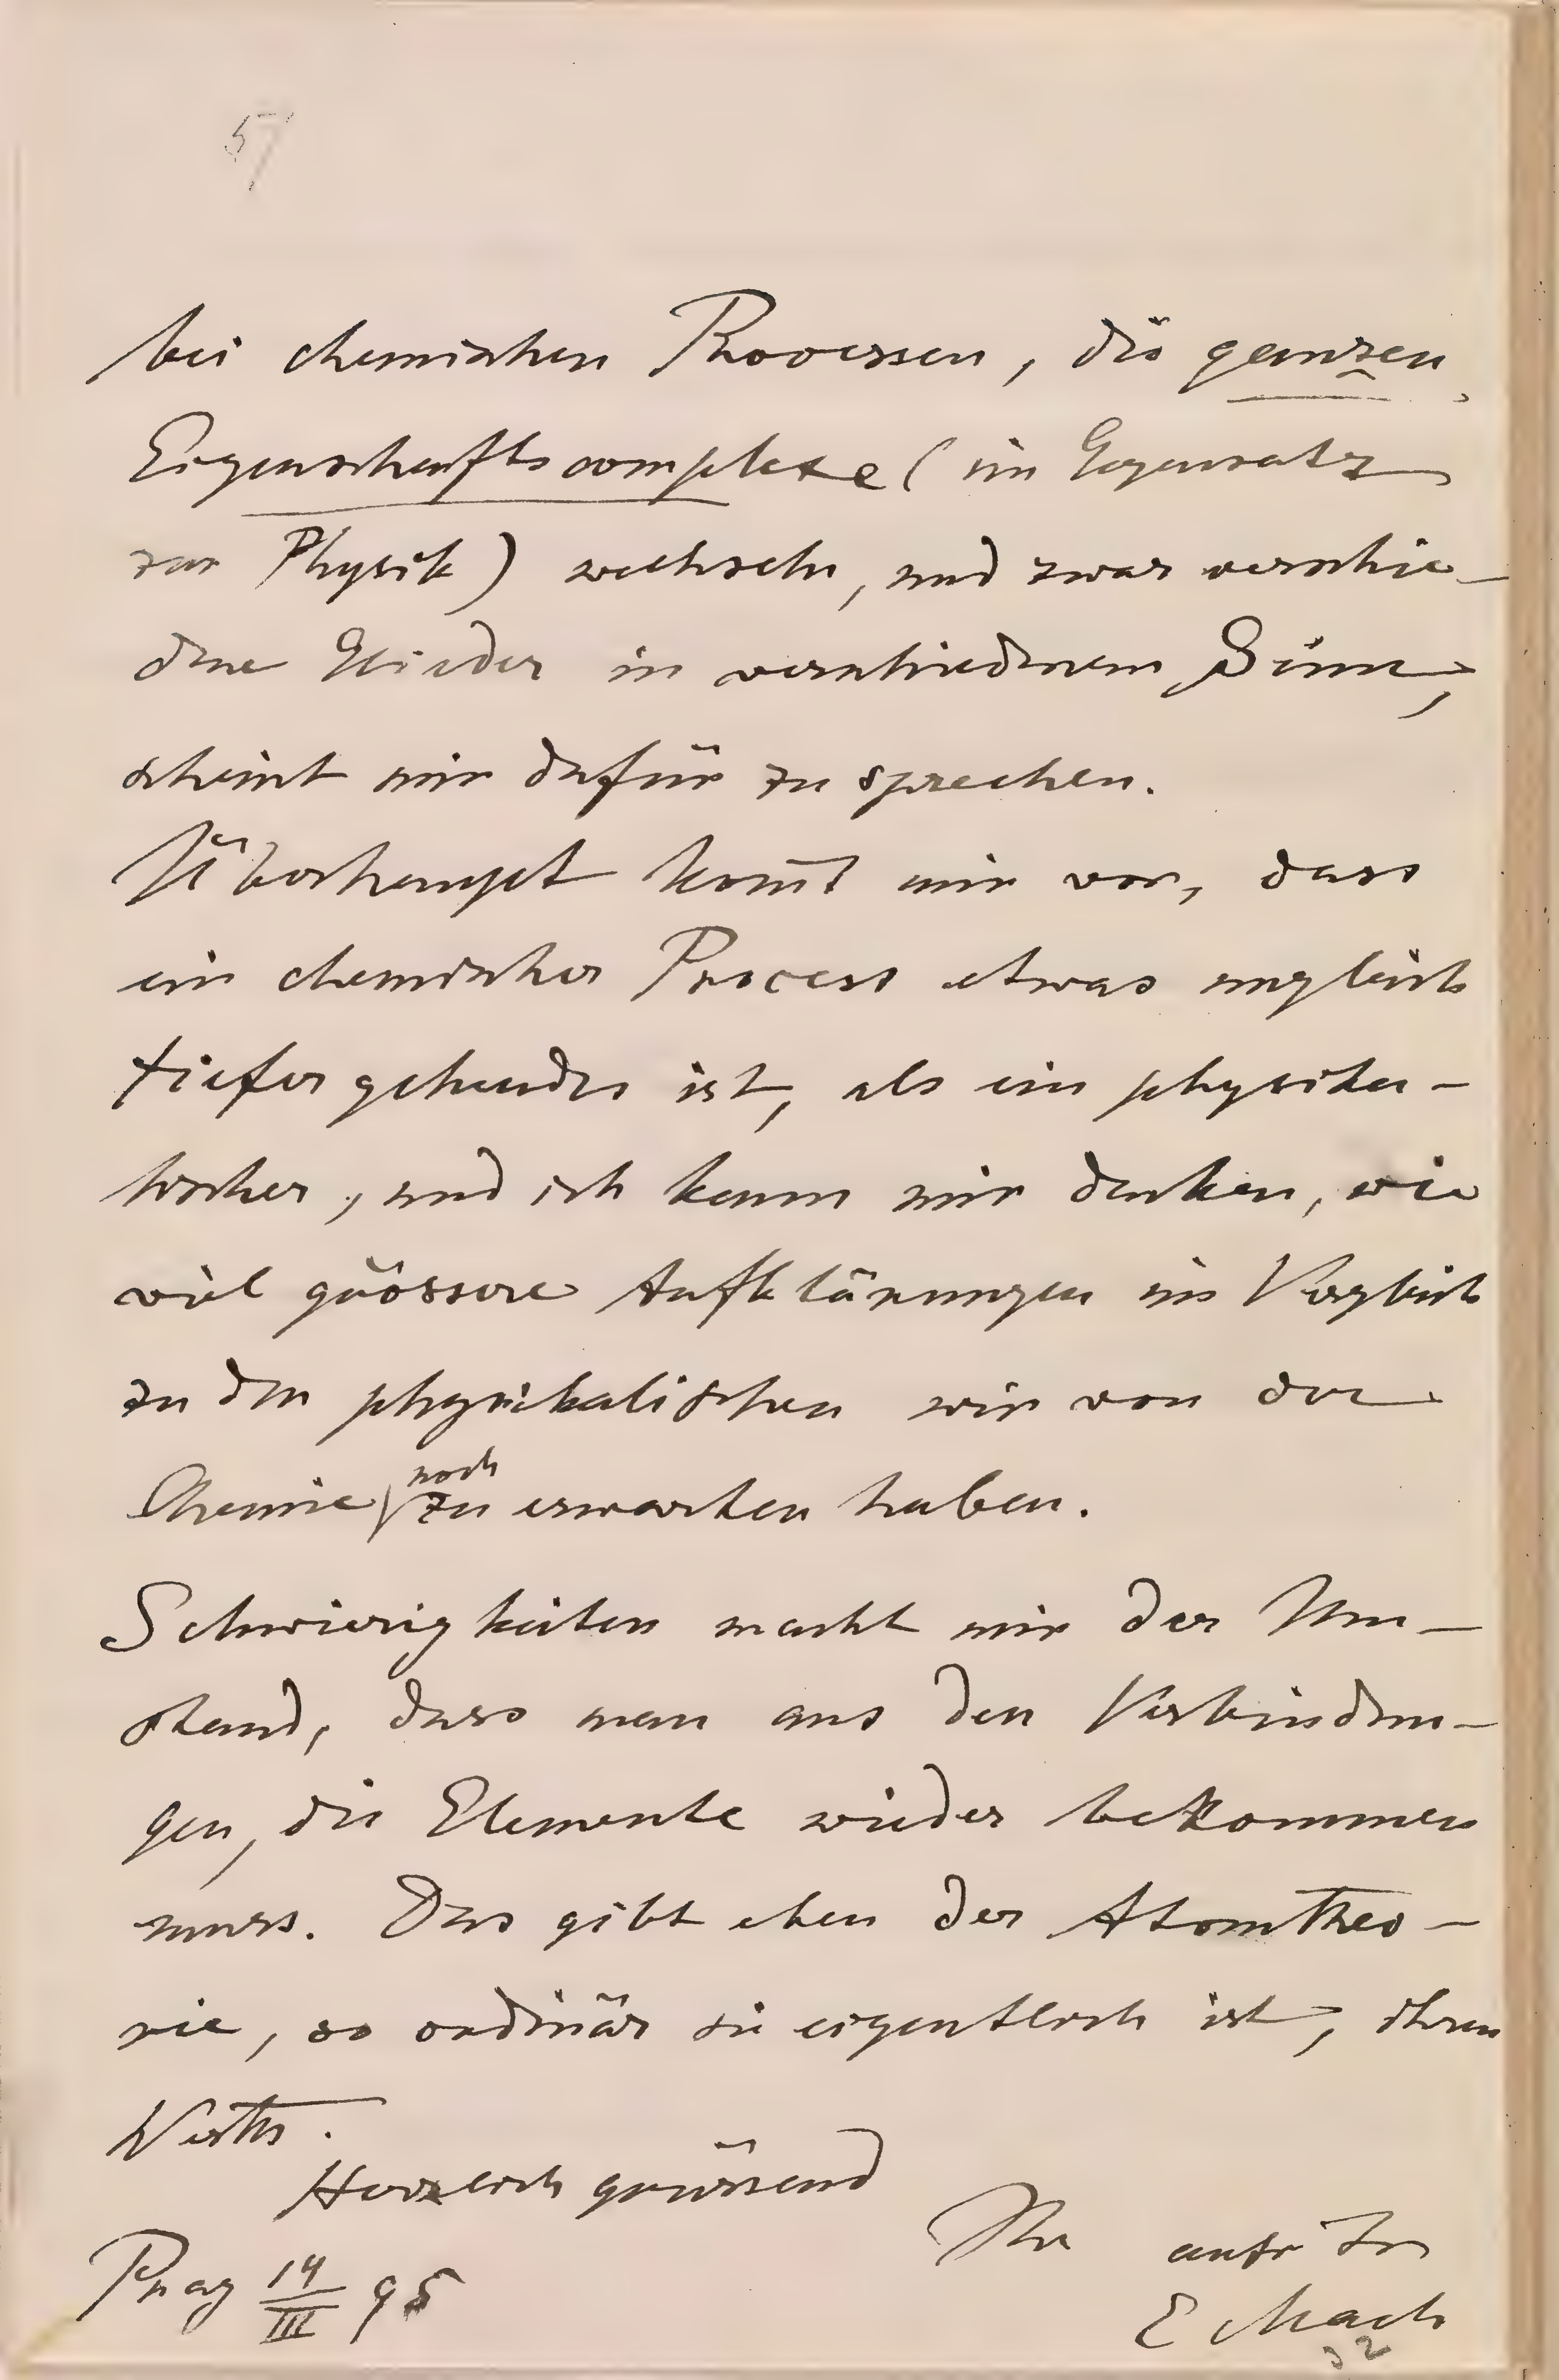 57
bei chemischen Processen, die ganzen
Eigenschaftscomplexe (im Gegensatz
zur Physik) wechseln, und zwar verschie-
dene Glieder in verschiedenem Sinne,
scheint mir dafür zu sprechen.
Überhaupt kom̄t mir vor, dass
ein chemischer Process etwas ungleich
tiefer gehendes ist, als ein physika-
lischer, und ich kann mir denken, wie
viel grössere Aufklärungen im Vergleich
zu den physikalischen wir von der
Chemie noch zu erwarten haben.
Schwierigkeiten macht mir der Um-
stand, dass man aus den Verbindun-
gen, die Elemente wieder bekommen
muss. Das gibt eben der Atomtheo-
rie, so ordinär sie eigentlich ist, ihren
Werth.
Herzlich grüssend
Ihr aufr Er
Prag 14/III 95
E Mach